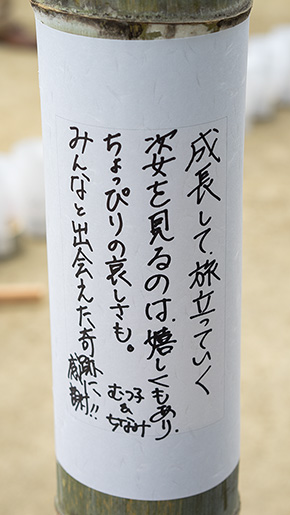 成長して旅立っていく
次女を見るのは、嬉しくもあり、
ちょっぴりの哀しさも。
みんなと出会えた奇跡に、
感謝!!
むつ子
&
ちなみ